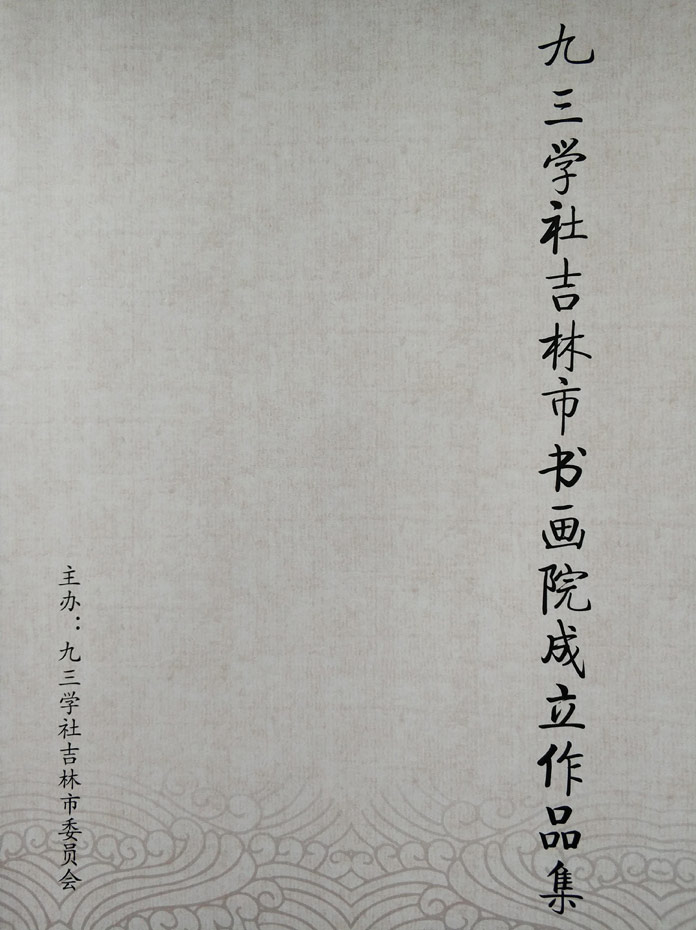 九三学社吉林市书画院成立作品集
主办：九三学社吉林市委员会